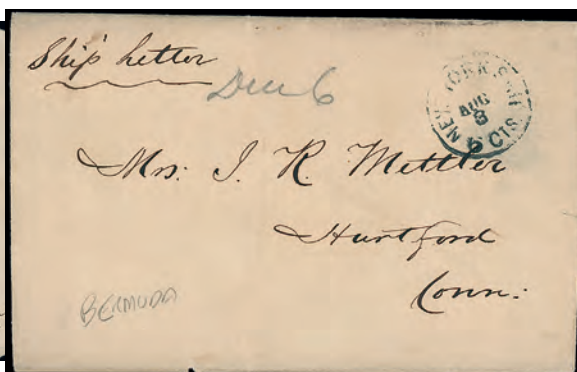 Ship Letter
Due 6
NEW YORK SHIP
AUG
8
6 CTS
Mrs. J. R. Mettler
Hartford
Conn:
BERMUDA